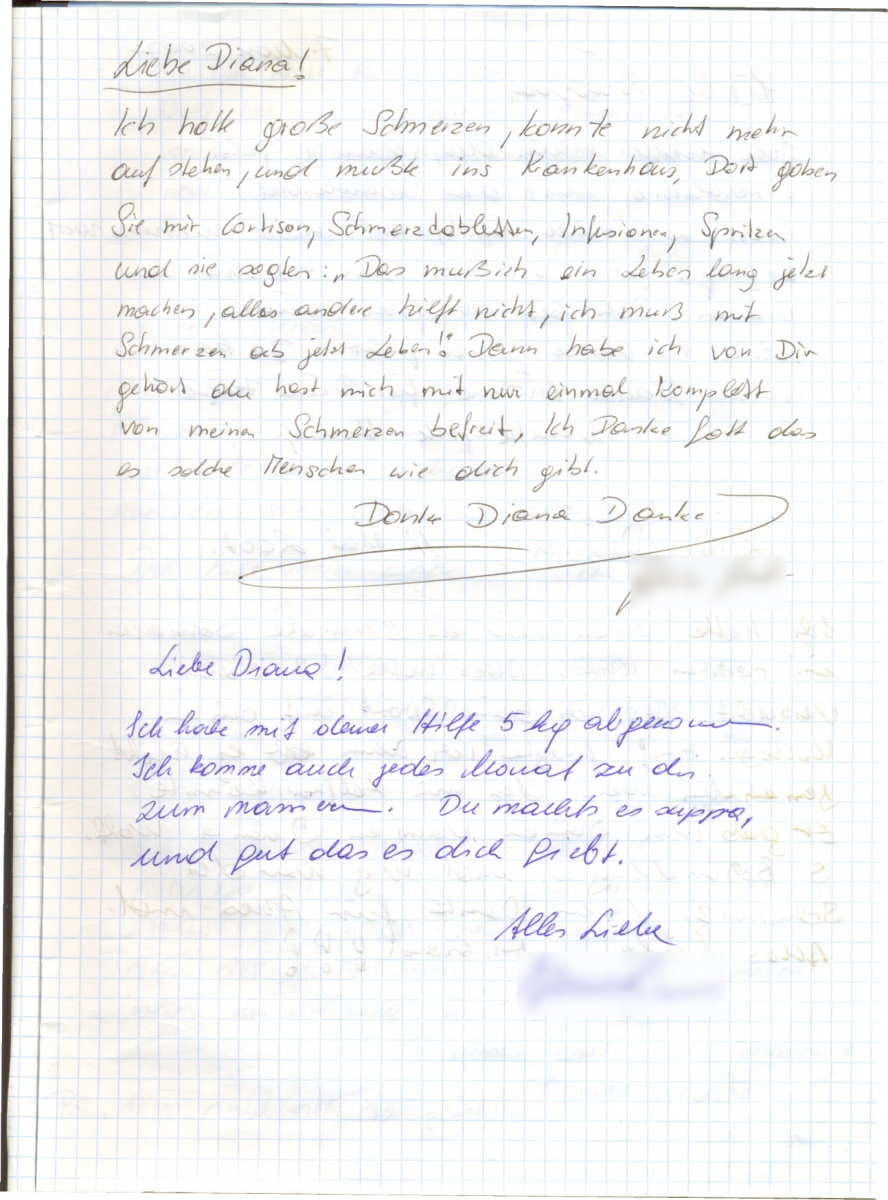 Liebe Diana!
Ich hatte große Schmerzen, konnte nicht mehr
aufstehen, und mußte ins Krankenhaus, Dort gaben
Sie mir Cortison, Schmerzdabletten, Infusionen, Spritzen
und sie sagten: „Das muß ich ein Leben lang jetzt
machen, alles andere hilft nicht, ich muß mit
Schmerzen ab jetzt Leben!" Dann habe ich von Dir
gehört du hast mich mit nur einmal komplett
von meinen Schmerzen befreit, Ich Danke Gott das
es solche Menschen wie dich gibt.
Danke Diana Danke
Liebe Diana!
Ich habe mit deiner Hilfe 5 kg abgenommen.
Ich komme auch jedes Monat zu dir
zum massieren. Du machts es suppa,
und gut das es dich giebt.
Alles Liebe